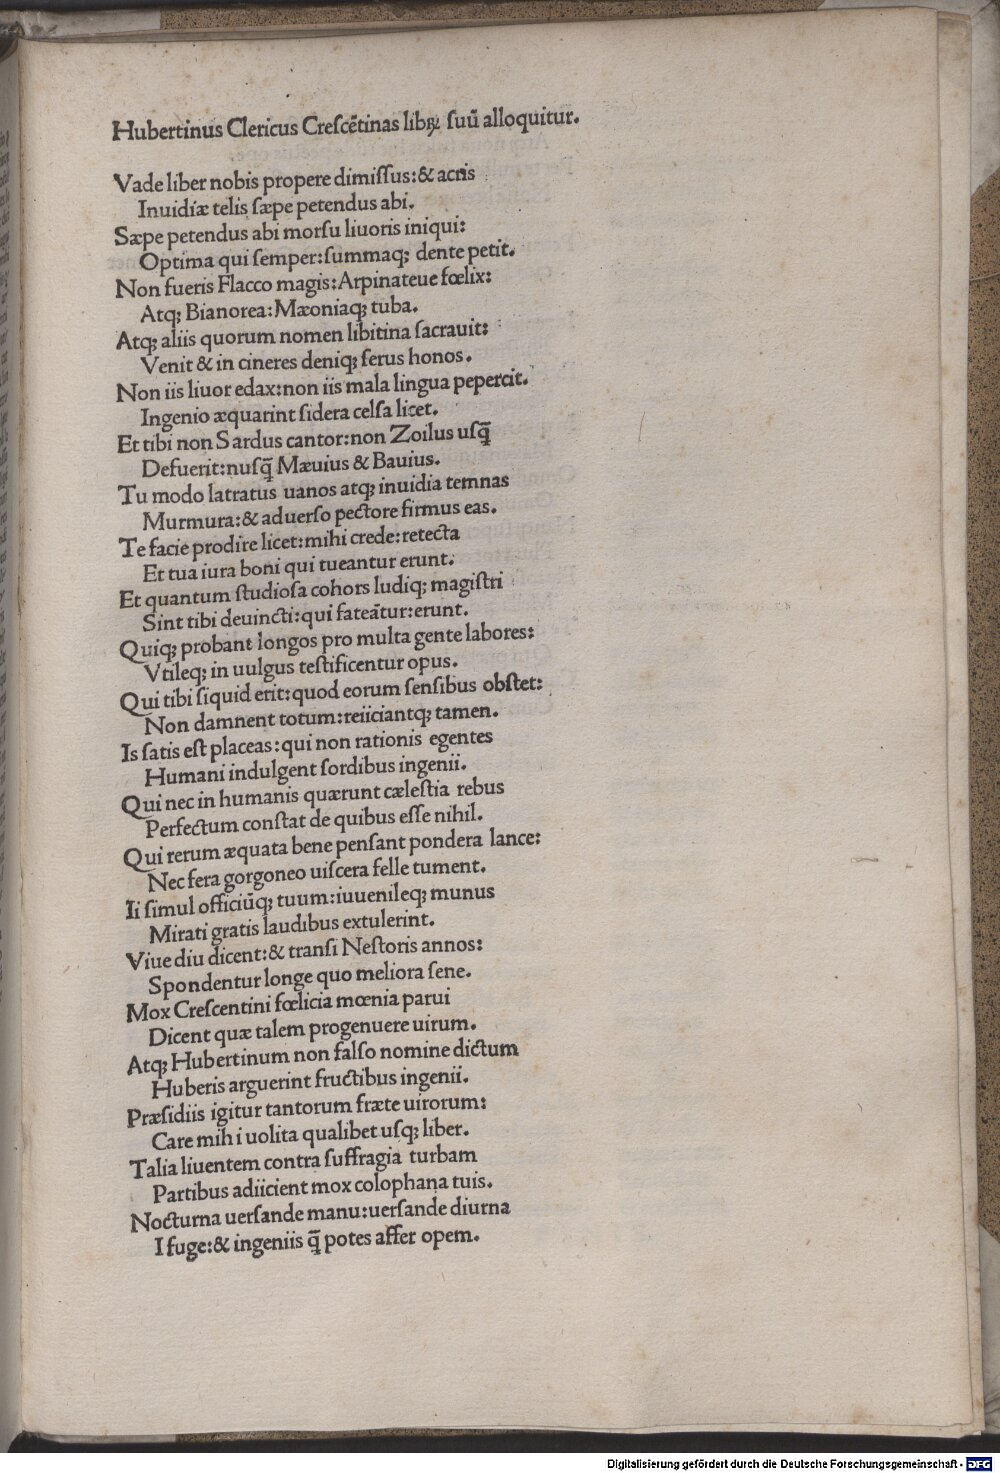 Hubertinus Clericus Creſcētinas libꝝ ſuū alloquitur.
Vade liber nobis propere dimiſſus:& acris
Inuidiæ telis ſæpe petendus abi.
Sæpe petendus abi morſu liuoris iniqui:
Optima qui ſemper:ſummaq; dente petit.
Non fueris Flacco magis:Arpinateue fœlix:
Atq; Bianorea:Mæoniaq; tuba.
Atq; aliis quorum nomen libitina ſacrauit:
Venit & in cineres deniq; ſerus honos.
Non iis liuor edax:non iis mala lingua pepercit.
Ingenio æquarint ſidera celſa licet.
Et tibi non Sardus cantor:non Zoilus uſq̄
Defuerit:nuſq̄ Mæuius & Bauius.
Tu modo latratus uanos atq; inuidia temnas
Murmura:& aduerſo pectore firmus eas.
Te facie prodire licet:mihi crede:retecta
Et tua iura boni qui tueantur erunt.
Et quantum ſtudioſa cohors ludiq; magiſtri
Sint tibi deuincti:qui fateātur:erunt.
Quiq; probant longos pro multa gente labores:
Vtileq; in uulgus teſtificentur opus.
Qui tibi ſiquid erit:quod eorum ſenſibus obſtet:
Non damnent totum:reiiciantq; tamen.
Is ſatis eſt placeas:qui non rationis egentes
Humani indulgent ſordibus ingenii.
Qui nec in humanis quærunt cæleſtia rebus
Perfectum conſtat de quibus eſſe nihil.
Qui rerum æquata bene penſant pondera lance:
Nec fera gorgoneo uiſcera felle tument.
Ii ſimul officiūq; tuum:iuuenileq; munus
Mirati gratis laudibus extulerint.
Viue diu dicent:& tranſi Neſtoris annos:
Spondentur longe quo meliora ſene.
Mox Creſcentini fœlicia mœnia parui
Dicent quæ talem progenuere uirum.
Atq; Hubertinum non falſo nomine dictum
Huberis arguerint fructibus ingenii.
Præſidiis igitur tantorum fræte uirorum:
Care mihi uolita qualibet uſq; liber.
Talia liuentem contra ſuffragia turbam
Partibus adiicient mox colophana tuis.
Nocturna uerſande manu:uerſande diurna
I fuge:& ingeniis q̄ potes affer opem.
Digitalisierung gefördert durch die Deutsche Forschungsgemeinschaft - DFG